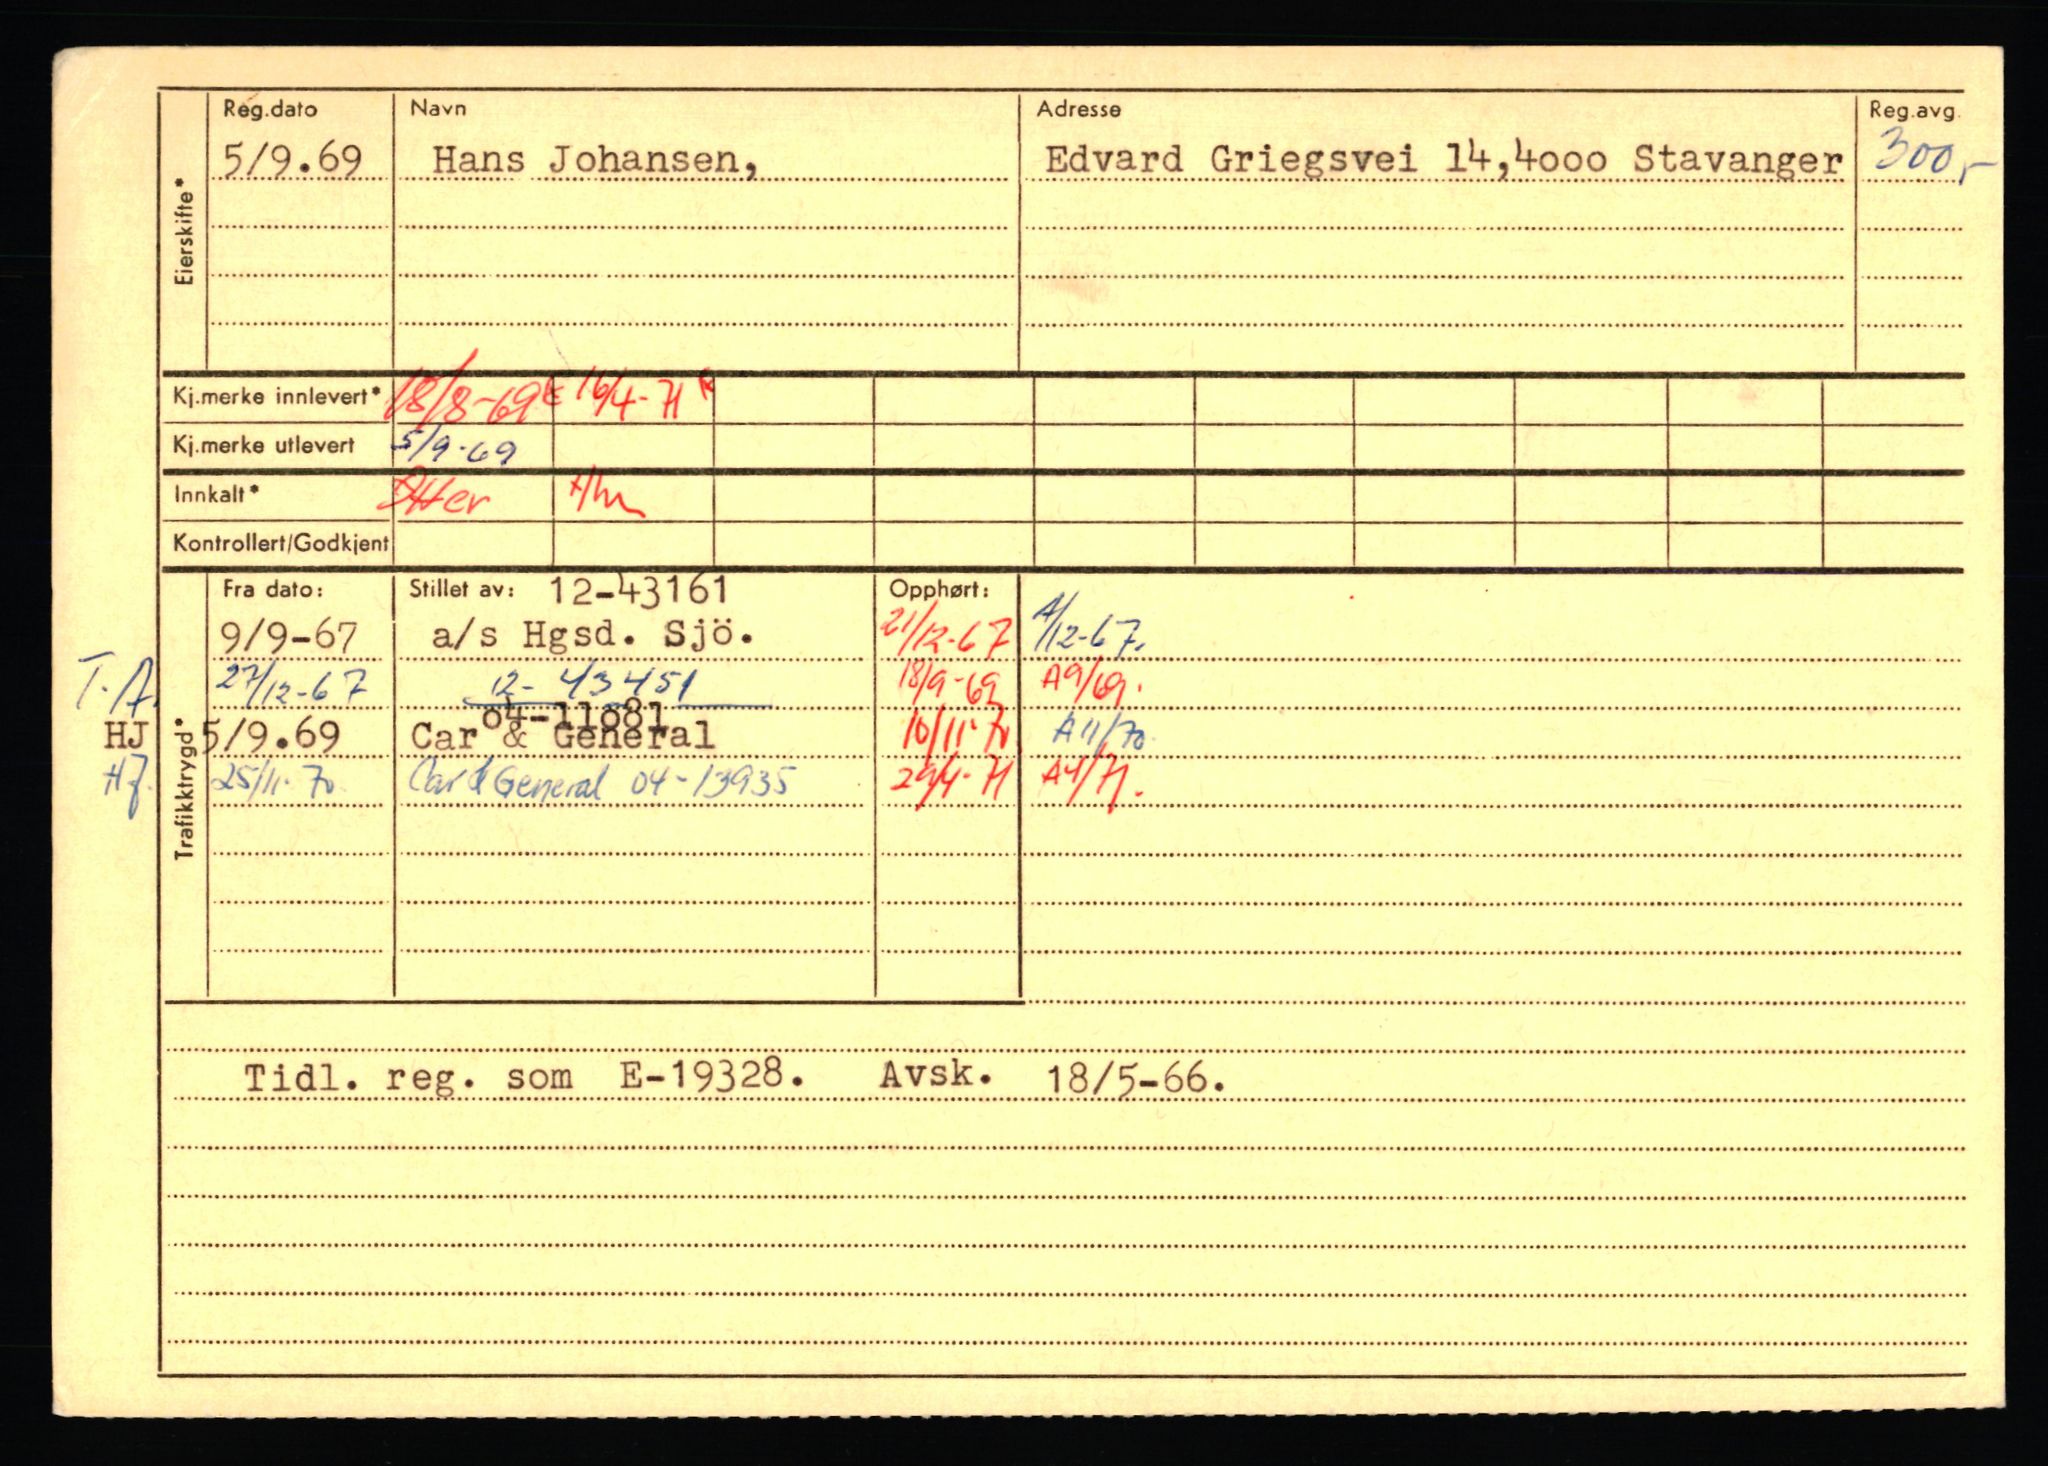 Reg.dato Navn Adresse Reg.avg.
5/9.69 Hans Johansen, Edvard Griegsvei 14,4ooo Stavanger 300,-
Eierskifte*
Kj.merke innlevert* 18/8-69 16/4-71
Kj.merke utlevert 5/9-69
Innkalt*
Kontrollert/Godkjent
Fra dato: Stillet av: 12-43161 Opphørt:
9/9-67 a/s Hgsd. Sjö. 21/12-67 A/12-67.
T.A. 27/12-67 12-43451 18/9-69 A9/69.
o4-11o81
HJ 5/9.69 Car & General 10/11-70 A11/70
HJ. 25/11-70. Car & General 04-13935 29/4-71 A4/71.
Trafikktrygd*
Tidl. reg. som E-19328. Avsk. 18/5-66.